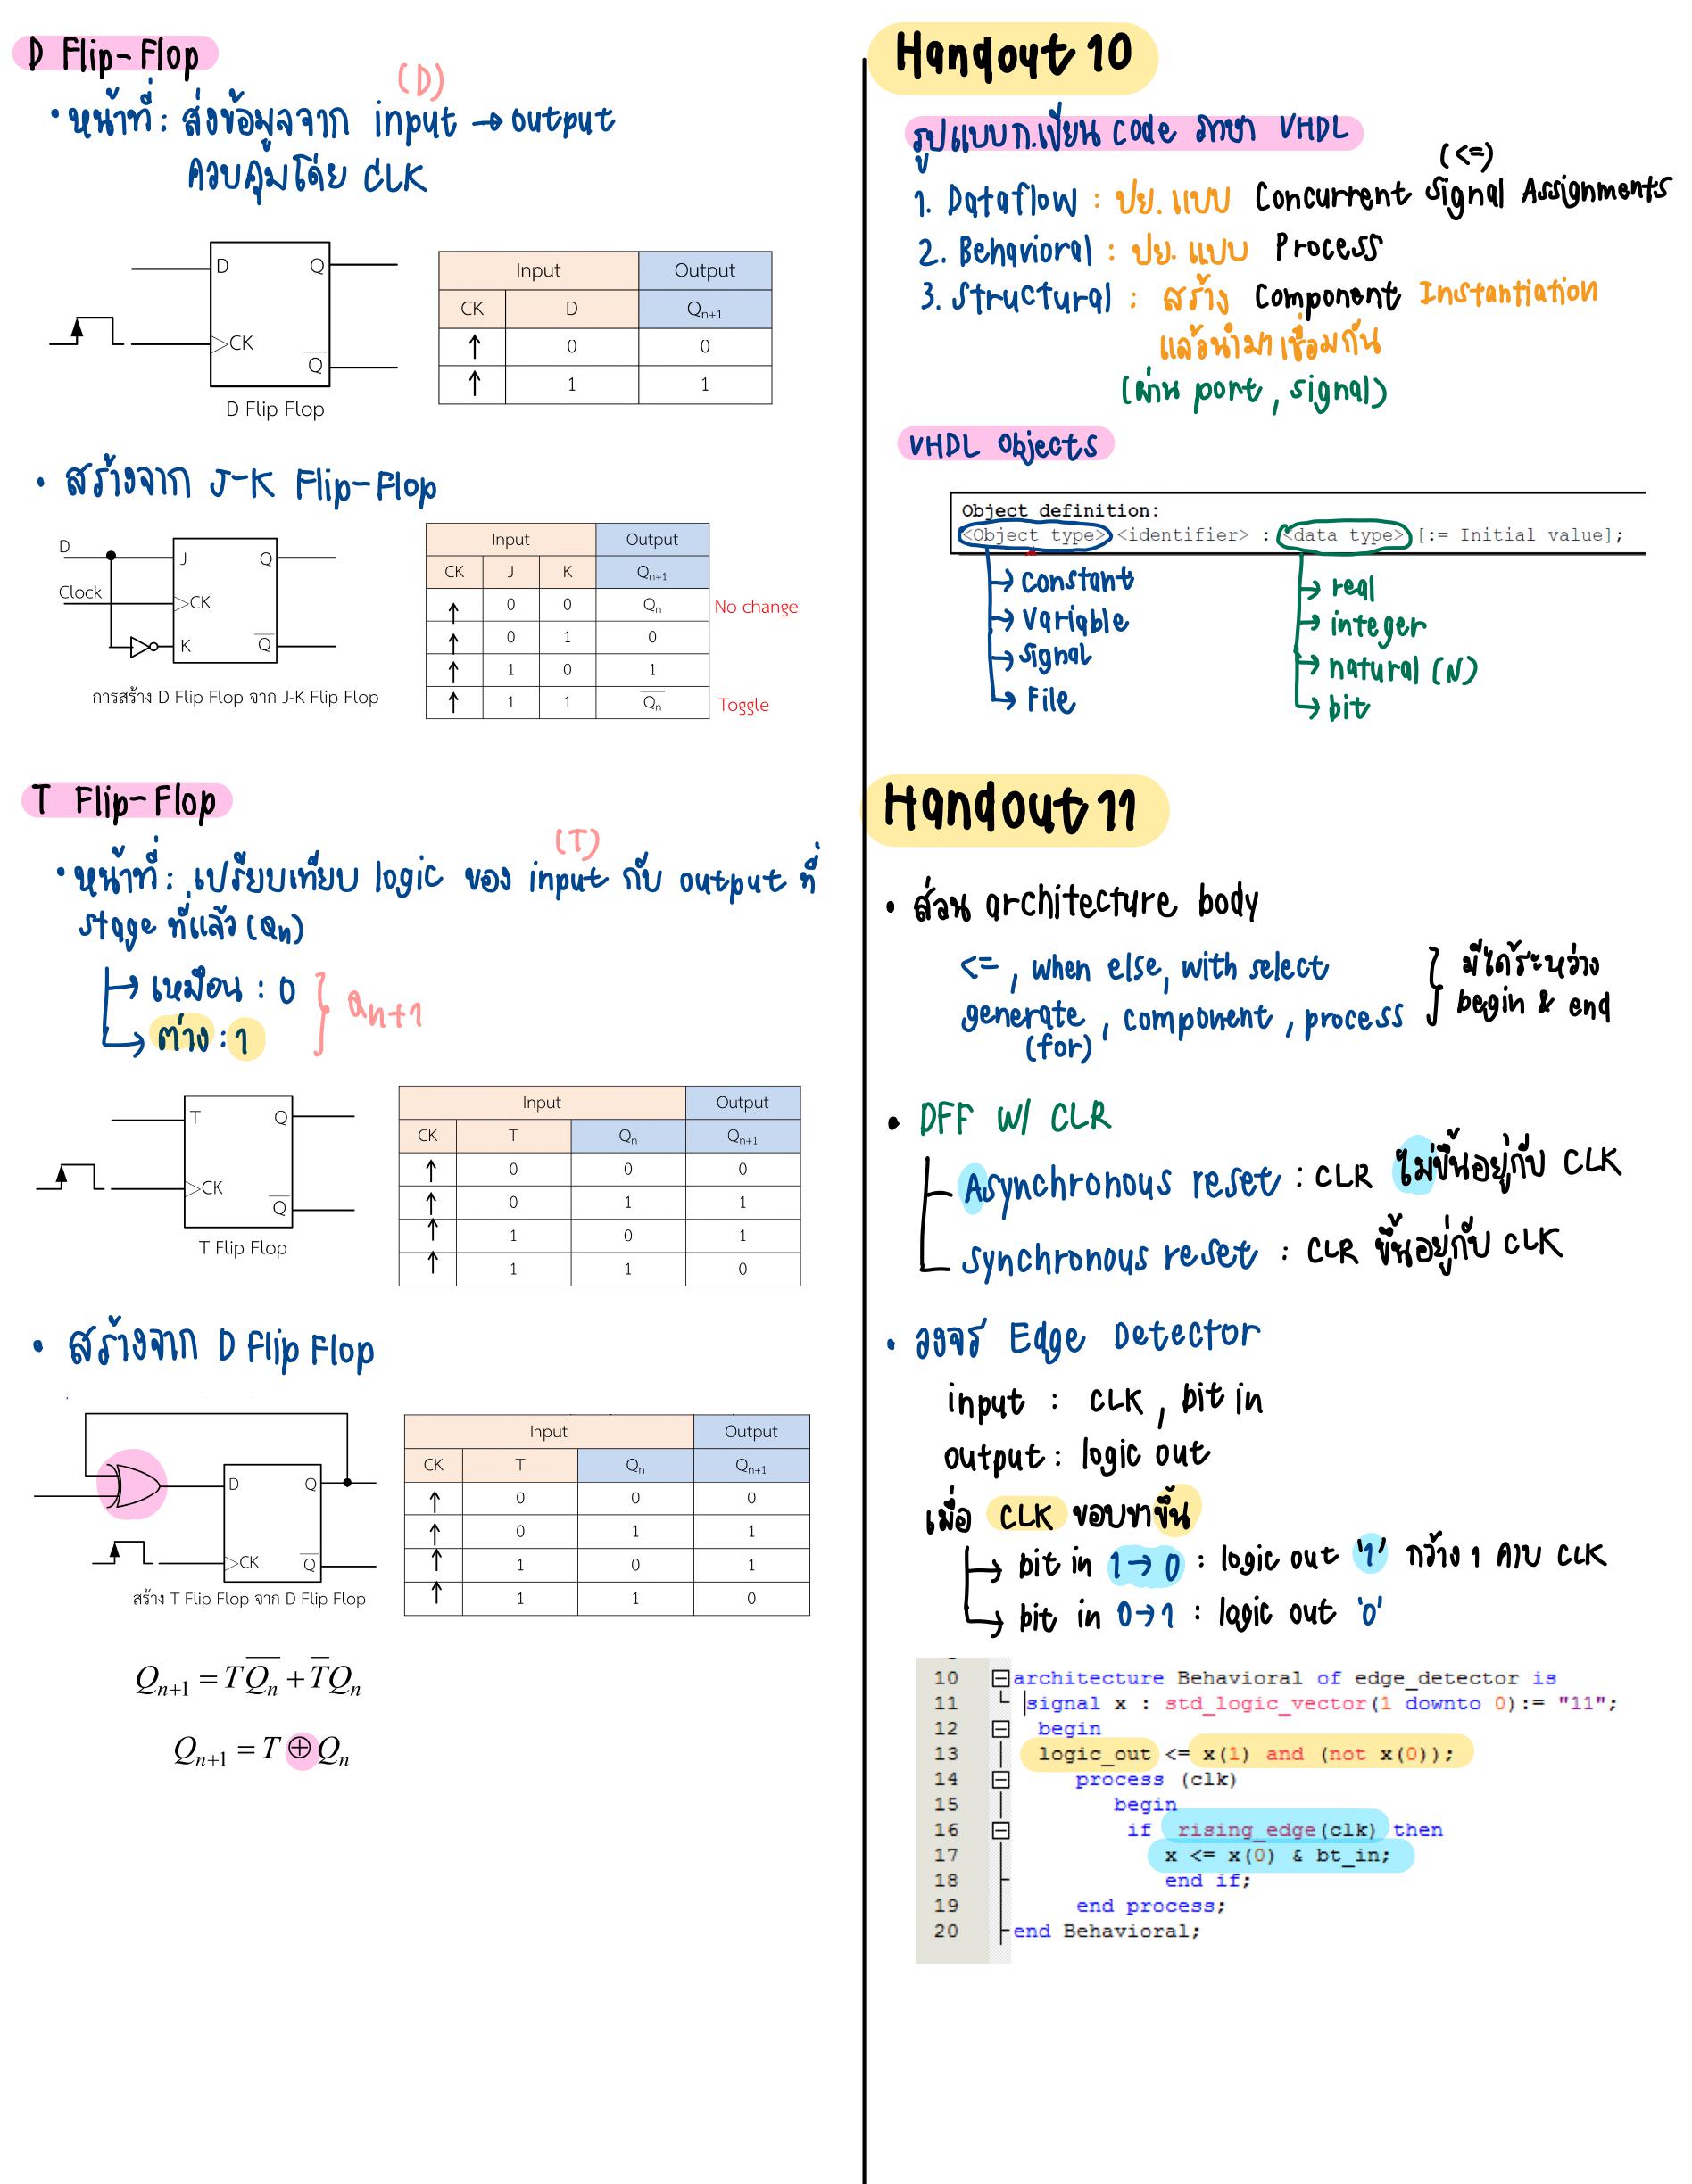 D Flip-Flop
(D)
• หน้าที่ : ส่งข้อมูลจาก input → output
ควบคุมโดย CLK
D Q
CK Q̅
D Flip Flop
Input Output
CK D Qn+1
↑ 0 0
↑ 1 1
• สร้างจาก J-K Flip-Flop
D
Clock
J Q
CK
K Q̅
การสร้าง D Flip Flop จาก J-K Flip Flop
Input Output
CK J K Qn+1
↑ 0 0 Qn No change
↑ 0 1 0
↑ 1 0 1
↑ 1 1 Q̅n Toggle
T Flip-Flop
(T)
• หน้าที่ : เปรียบเทียบ logic ของ input กับ output ที่
stage ที่แล้ว (Qn)
→ เหมือน : 0
→ ต่าง : 1
} Qn+1
T Q
CK Q̅
T Flip Flop
Input Output
CK T Qn Qn+1
↑ 0 0 0
↑ 0 1 1
↑ 1 0 1
↑ 1 1 0
• สร้างจาก D Flip Flop
D Q
CK Q̅
สร้าง T Flip Flop จาก D Flip Flop
Input Output
CK T Qn Qn+1
↑ 0 0 0
↑ 0 1 1
↑ 1 0 1
↑ 1 1 0
Qn+1 = TQ̅n + T̅Qn
Qn+1 = T ⊕ Qn
Handout 10
รูปแบบก.เขียน code ภาษา VHDL
(<=)
1. Dataflow : ปย. แบบ Concurrent Signal Assignments
2. Behavioral : ปย. แบบ Process
3. Structural : สร้าง Component Instantiation
แล้วนำมาเชื่อมกัน
(ผ่าน port , signal)
VHDL Objects
Object definition:
<Object type> <identifier> : <data type> [:= Initial value];
→ constant
→ variable
→ signal
→ File
→ real
→ integer
→ natural (N)
→ bit
Handout 11
• ส่วน architecture body
<= , when else, with select
generate , component , process
(for)
} มีได้ระหว่าง
begin & end
• DFF W/ CLR
Asynchronous reset : CLR ไม่ขึ้นอยู่กับ CLK
Synchronous reset : CLR ขึ้นอยู่กับ CLK
• วงจร Edge Detector
input : CLK , bit in
output : logic out
เมื่อ CLK ขอบขาขึ้น
→ bit in 1→0 : logic out '1' กว้าง 1 คาบ CLK
→ bit in 0→1 : logic out '0'
10 architecture Behavioral of edge_detector is
11 signal x : std_logic_vector(1 downto 0):= "11";
12 begin
13 logic_out <= x(1) and (not x(0));
14 process (clk)
15 begin
16 if rising_edge(clk) then
17 x <= x(0) & bt_in;
18 end if;
19 end process;
20 end Behavioral;